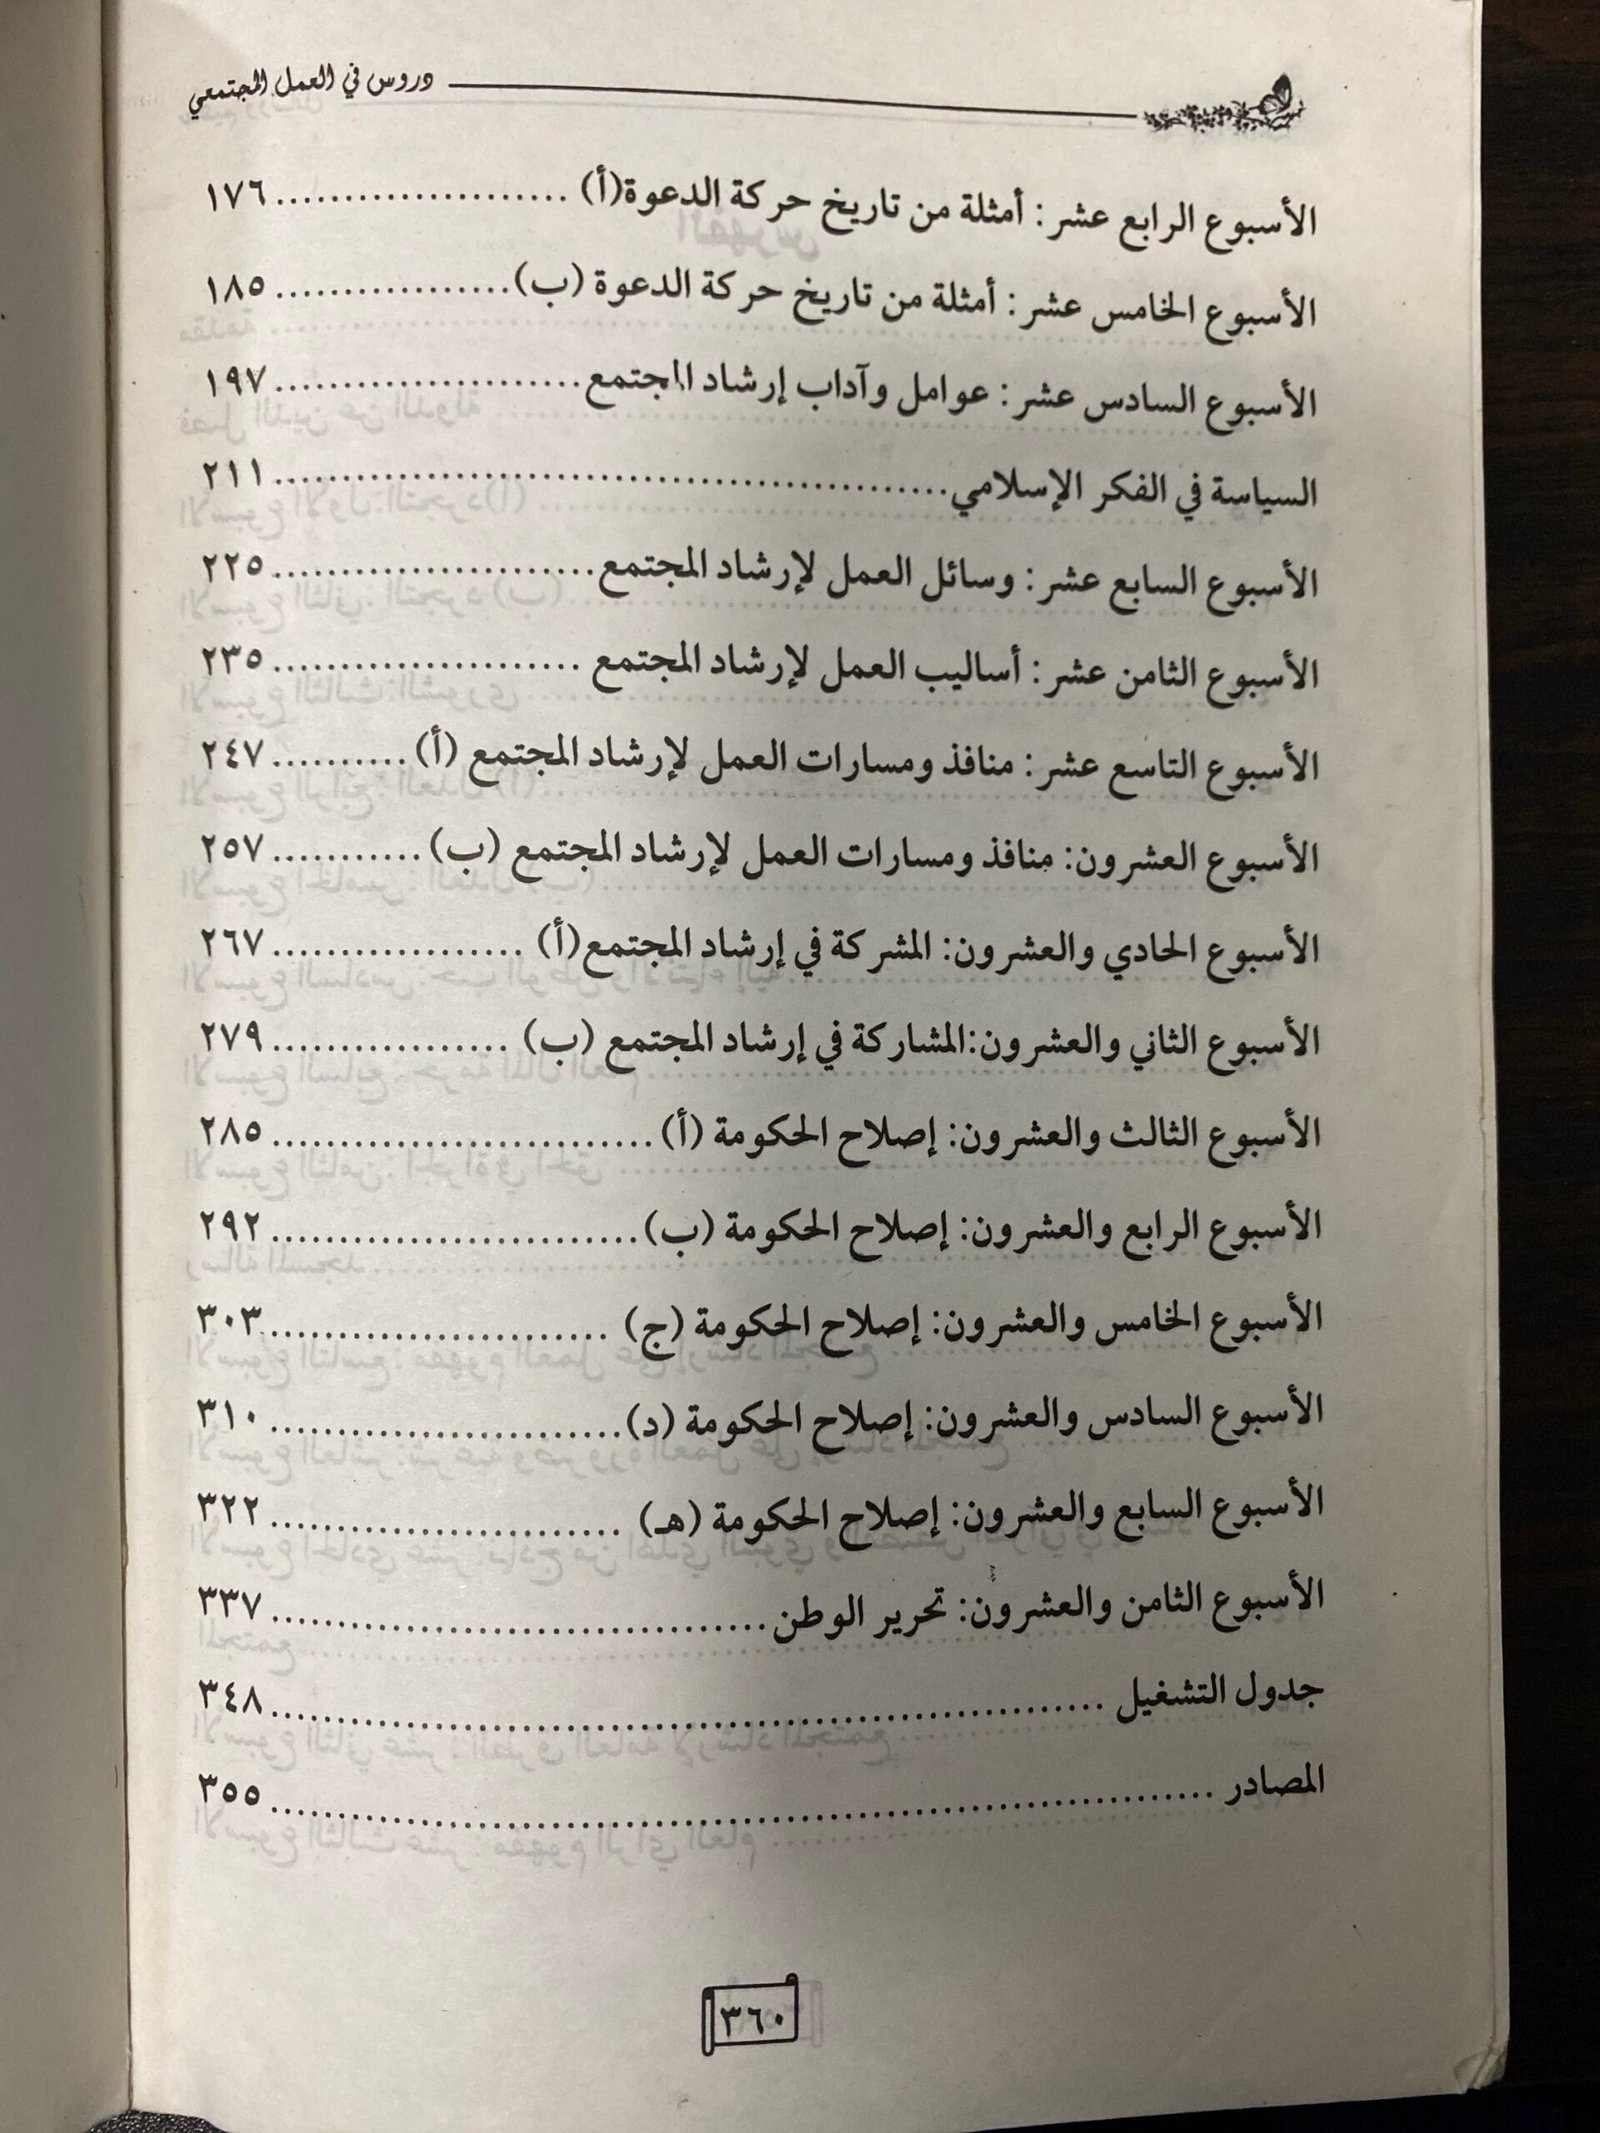 دروس في العمل المجتمعي
الأسبوع الرابع عشر: أمثلة من تاريخ حركة الدعوة(أ) ..................... ١٧٦
الأسبوع الخامس عشر: أمثلة من تاريخ حركة الدعوة (ب)................. ١٨٥
الأسبوع السادس عشر: عوامل وآداب إرشاد المجتمع...................... ١٩٧
السياسة في الفكر الإسلامي................................................ ٢١١
الأسبوع السابع عشر: وسائل العمل لإرشاد المجتمع....................... ٢٢٥
الأسبوع الثامن عشر: أساليب العمل لإرشاد المجتمع ...................... ٢٣٥
الأسبوع التاسع عشر: منافذ ومسارات العمل لإرشاد المجتمع (أ) .......... ٢٤٧
الأسبوع العشرون: منافذ ومسارات العمل لإرشاد المجتمع (ب) ........... ٢٥٧
الأسبوع الحادي والعشرون: المشركة في إرشاد المجتمع(أ) .................. ٢٦٧
الأسبوع الثاني والعشرون:المشاركة في إرشاد المجتمع (ب) ................. ٢٧٩
الأسبوع الثالث والعشرون: إصلاح الحكومة (أ)............................ ٢٨٥
الأسبوع الرابع والعشرون: إصلاح الحكومة (ب)........................... ٢٩٢
الأسبوع الخامس والعشرون: إصلاح الحكومة (ج) ......................... ٣٠٣
الأسبوع السادس والعشرون: إصلاح الحكومة (د).......................... ٣١٠
الأسبوع السابع والعشرون: إصلاح الحكومة (هـ) .......................... ٣٢٢
الأسبوع الثامن والعشرون: تحرير الوطن.................................... ٣٣٧
جدول التشغيل ............................................................ ٣٤٨
المصادر .................................................................... ٣٥٥
٣٦٠